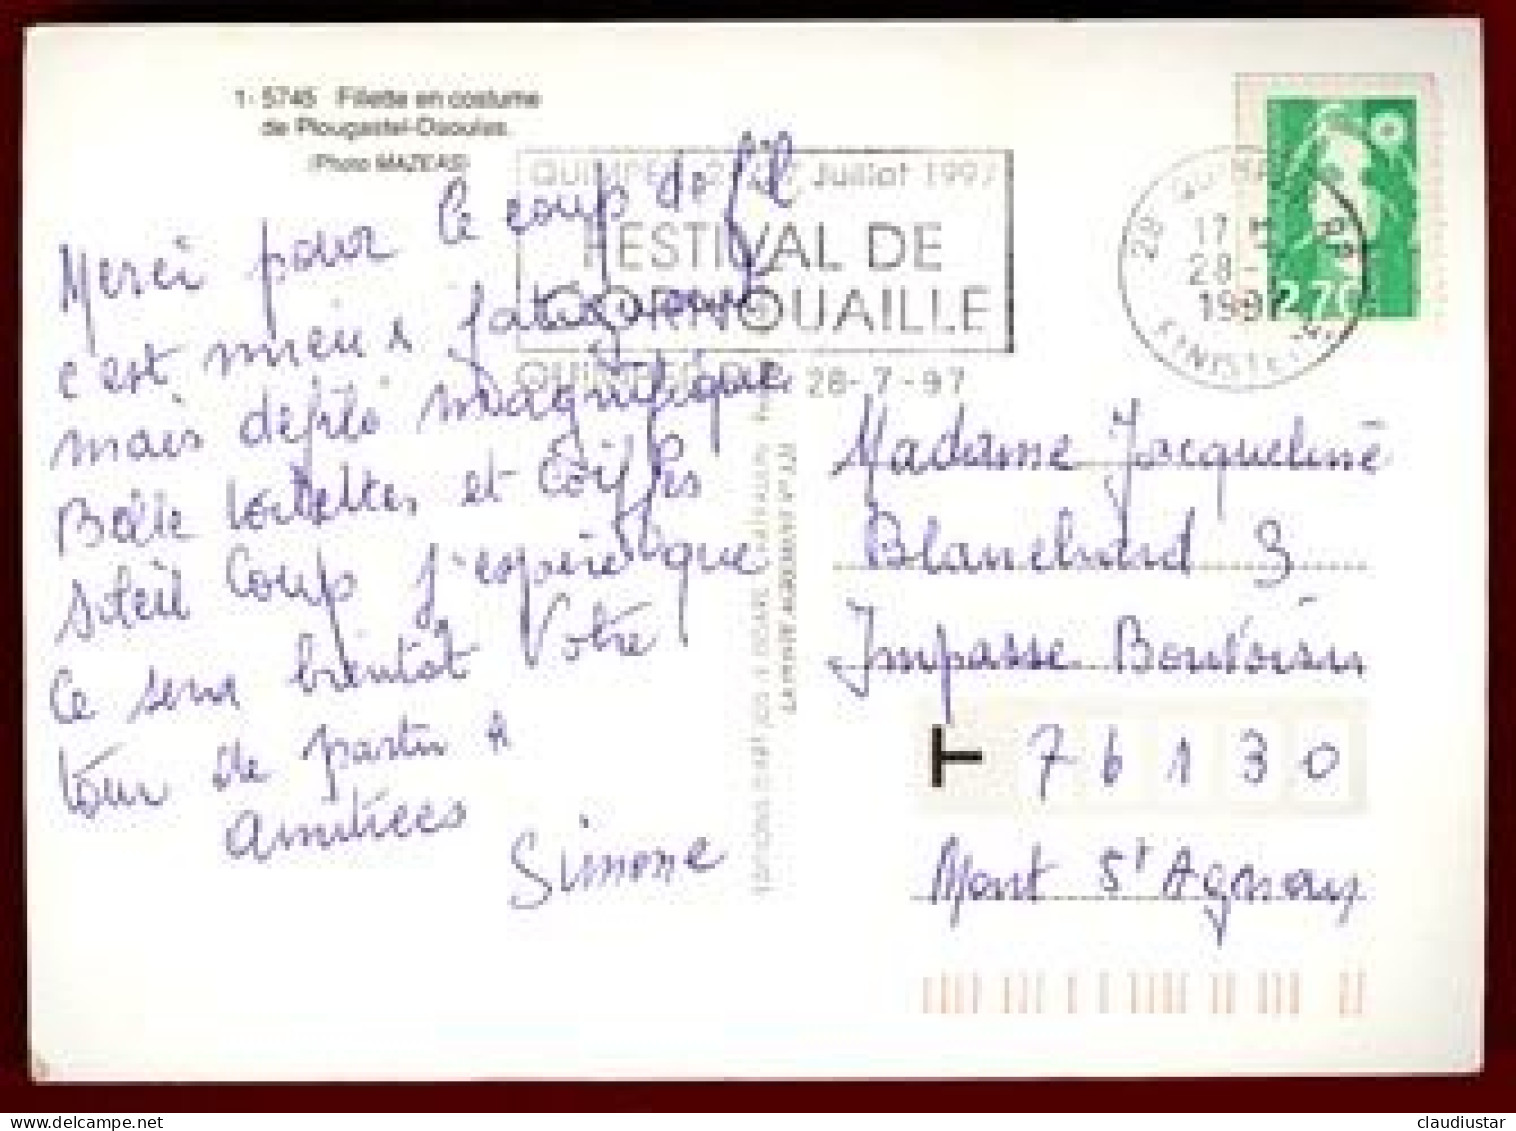 1- 5745 Fillette en costume
de Plougastel-Daoulas.
(Photo MAZEAS)
QUIMPER Juillet 1997
FESTIVAL DE
CORNOUAILLE
QUIMPER 28-7-97
17
28-
1997
FINISTERE
2,70
Merci pour le coup de fil
c'est mieux fatiguant
mais défilé magnifique
Belle toilettes et Coiffes
soleil Coup j'espère que
ce sera bientôt Votre
tour de partir A
amitiées
Simone
Madame Jacqueline
Blanchard 3
Impasse
T 76130
Mont St Agnan
delcampe.net
claudiustar